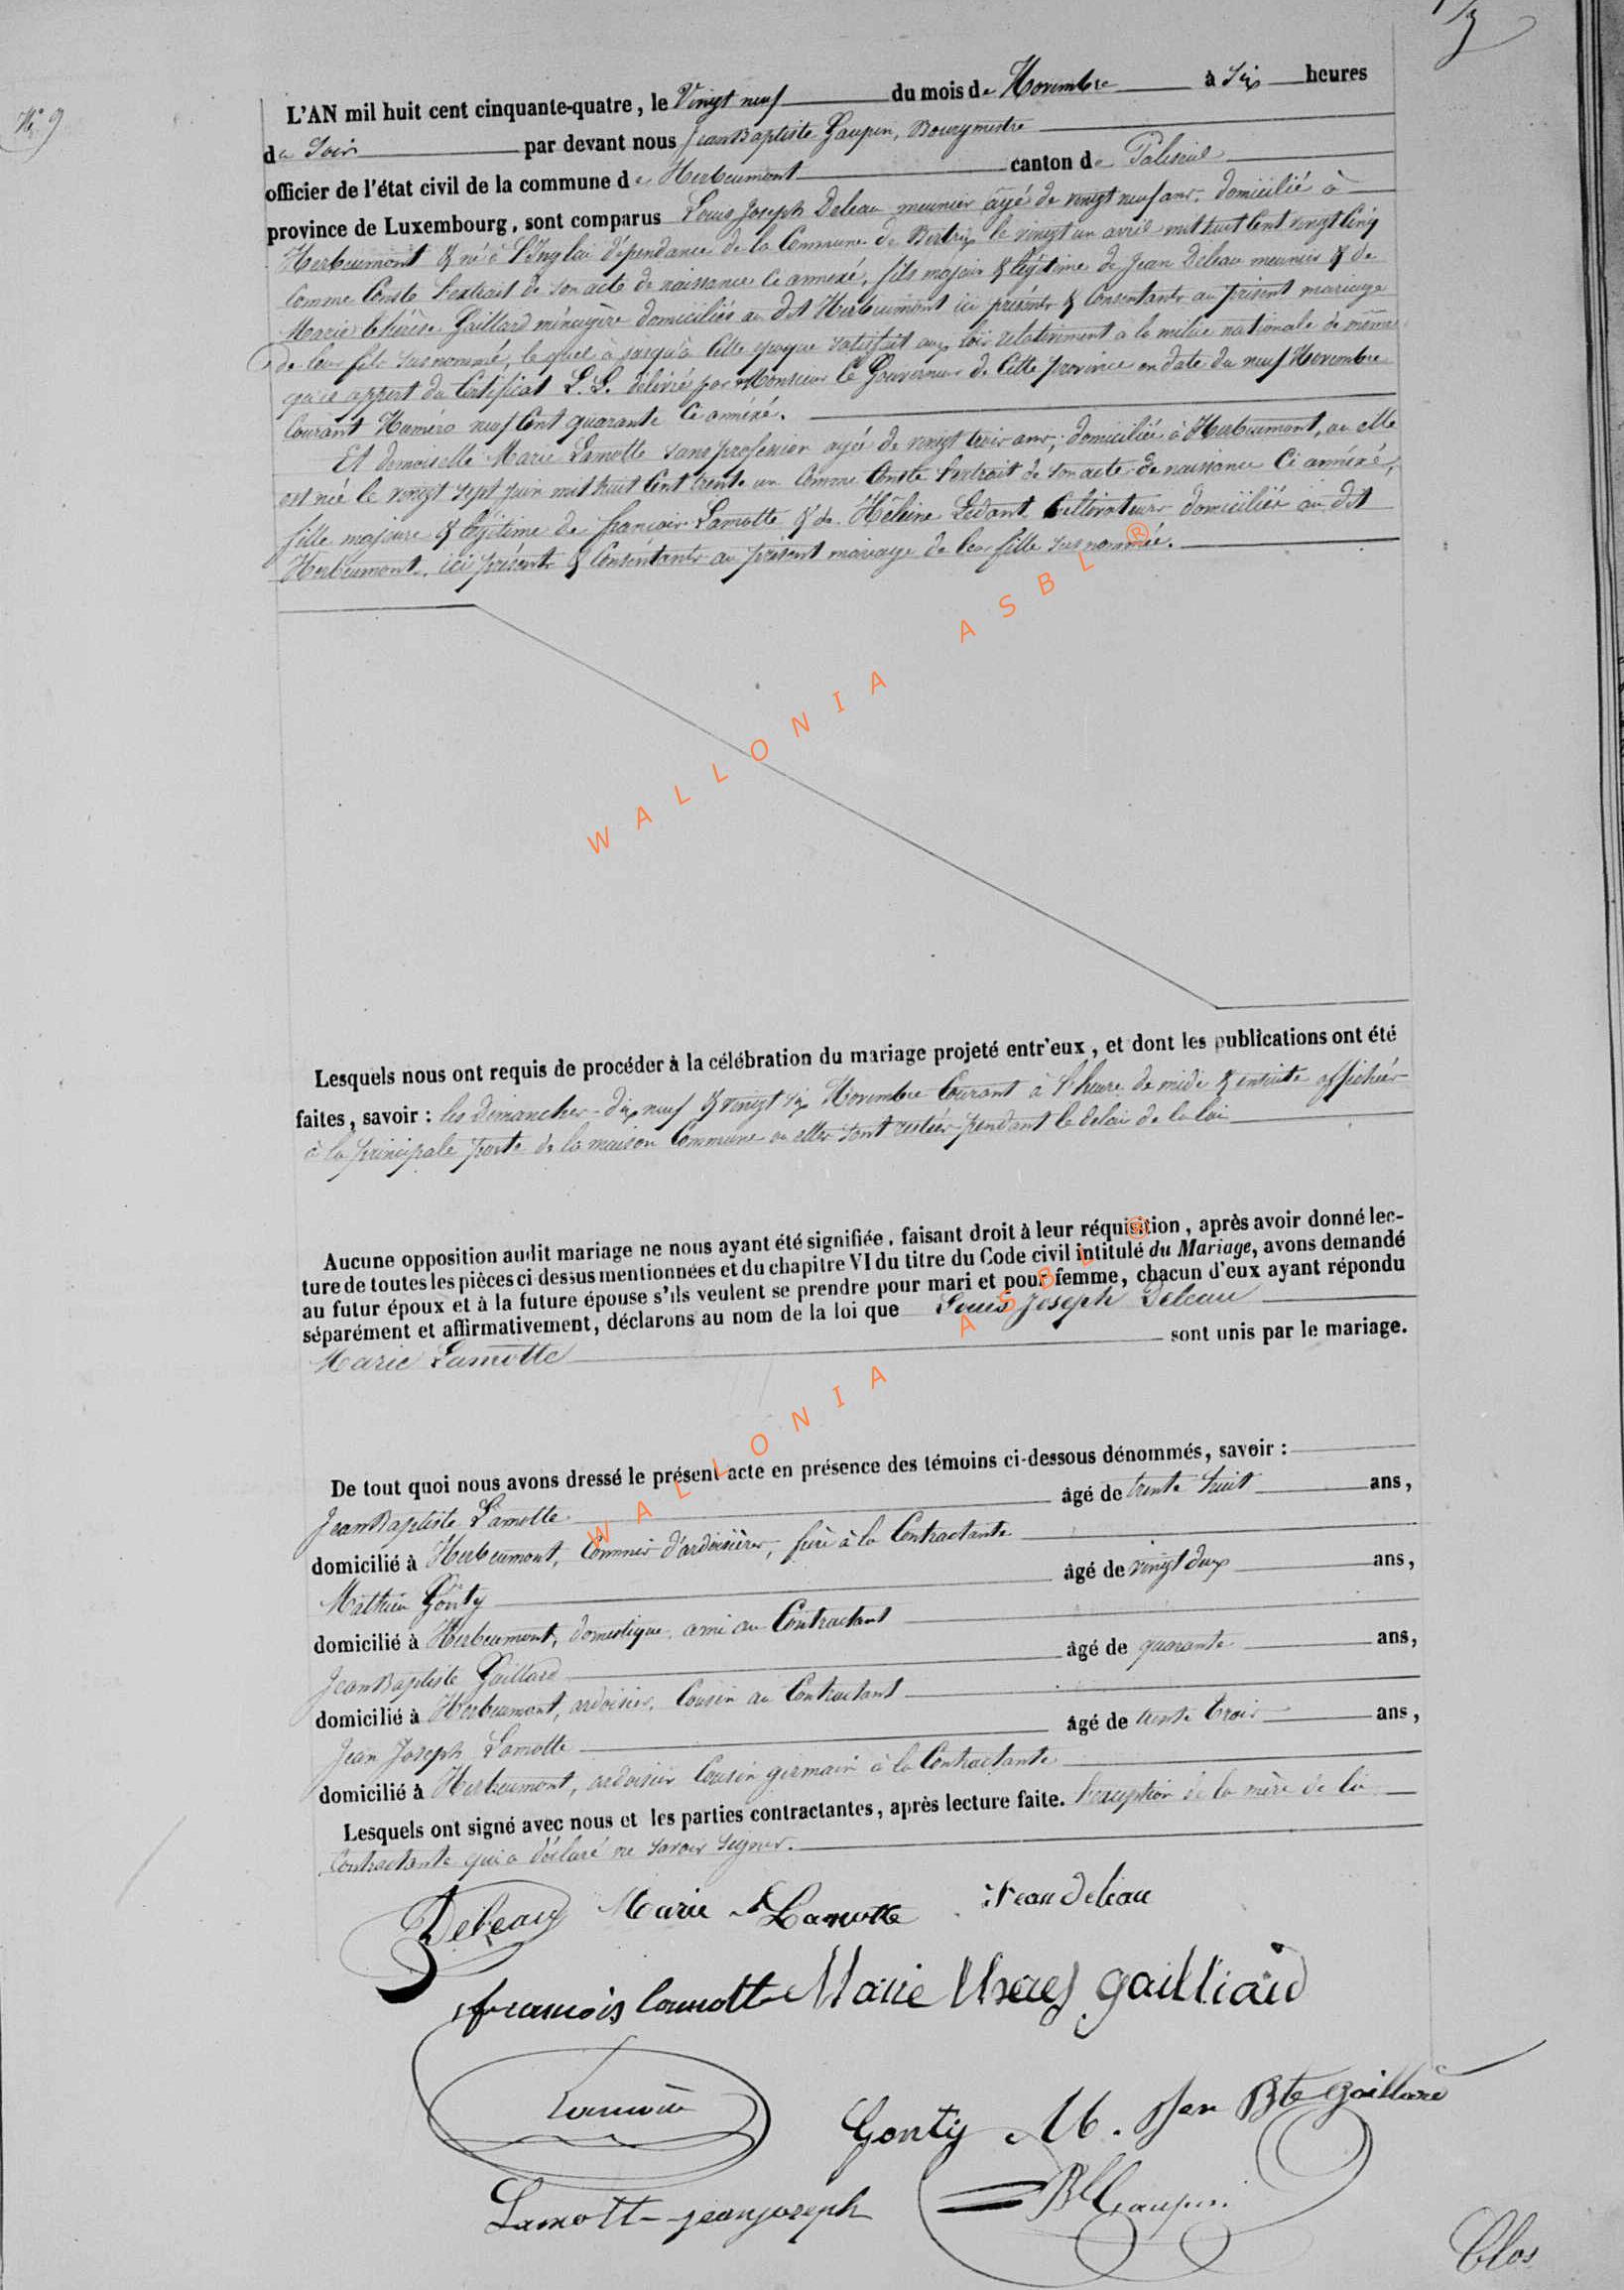 N° 9
L'AN mil huit cent cinquante-quatre, le Vingt neuf du mois de Novembre à Six heures
du Soir par devant nous Jean Baptiste Gaupin, Bourgmestre
officier de l'état civil de la commune de Herbeumont canton de Paliseul
province de Luxembourg, sont comparus Louis Joseph Deleau meunier âgé de vingt neuf ans, domicilié à
Herbeumont & né à dépendance de la Commune de Bertrix le vingt un avril mil huit Cent vingt Cinq
Comme Conste l'extrait de son acte de naissance Ci annexé, fils majeur & légitime de Jean Deleau meunier & de
Marie thérèse Gaillard ménagère domiciliés au dit Herbeumont ici présents & Consentants au present mariage
de leur fils susnommé, lequel à jusqu'à Cette epoque satisfait aux lois relativement a la milice nationale de même
qu'il appert du Certificat L.L. délivré par Monsieur le Gouverneur de Cette province en date du neuf Novembre
Courant Numéro neuf Cent quarante Ci annéxé.
Et demoiselle Marie Lamotte sans profession agée de vingt trois ans, domiciliée à Herbeumont, ou elle
est née le vingt sept juin mil huit Cent trente un Comme Conste l'extrait de son acte de naissance Ci annéxé,
fille majeure & légitime de françois Lamotte & de Hélène Ledant Cultivateurs domiciliés au dit
Herbeumont, ici présents & Consentants au présent mariage de leur fille susnommée.
WALLONIA ASBL ®
Lesquels nous ont requis de procéder à la célébration du mariage projeté entr'eux, et dont les publications ont été
faites, savoir : les dimanches dix neuf & vingt six Novembre Courant à l'heure de midi & ensuite affichées
à la principale porte de la maison Commune ou elles sont restées pendant le delai de la loi
Aucune opposition audit mariage ne nous ayant été signifiée, faisant droit à leur réquisition, après avoir donné lec-
ture de toutes les pièces ci-dessus mentionnées et du chapitre VI du titre du Code civil intitulé du Mariage, avons demandé
au futur époux et à la future épouse s'ils veulent se prendre pour mari et pour femme, chacun d'eux ayant répondu
séparément et affirmativement, déclarons au nom de la loi que Louis Joseph Deleau
Marie Lamotte sont unis par le mariage.
WALLONIA ASBL ®
De tout quoi nous avons dressé le présent acte en présence des témoins ci-dessous dénommés, savoir :
Jean Baptiste Lamotte âgé de trente huit ans,
domicilié à Herbeumont, Commis d'ardoisières, frère à la Contractante
Mathieu Gonty âgé de vingt deux ans,
domicilié à Herbeumont, domestique ami au Contractant
Jean Baptiste Gaillard âgé de quarante ans,
domicilié à Herbeumont, ardoisier, Cousin au Contractant
Jean Joseph Lamotte âgé de trente trois ans,
domicilié à Herbeumont, ardoisier Cousin germain à la Contractante
Lesquels ont signé avec nous et les parties contractantes, après lecture faite. l'exception de la mère de la
Contractante qui a déclaré ne savoir signer.
Deleau Marie Lamotte Jean deleau
francois lamotte Marie theres gailliard
Lamotte
Gonty M. Jan Bte Gaillard
Lamott jean joseph
Clos